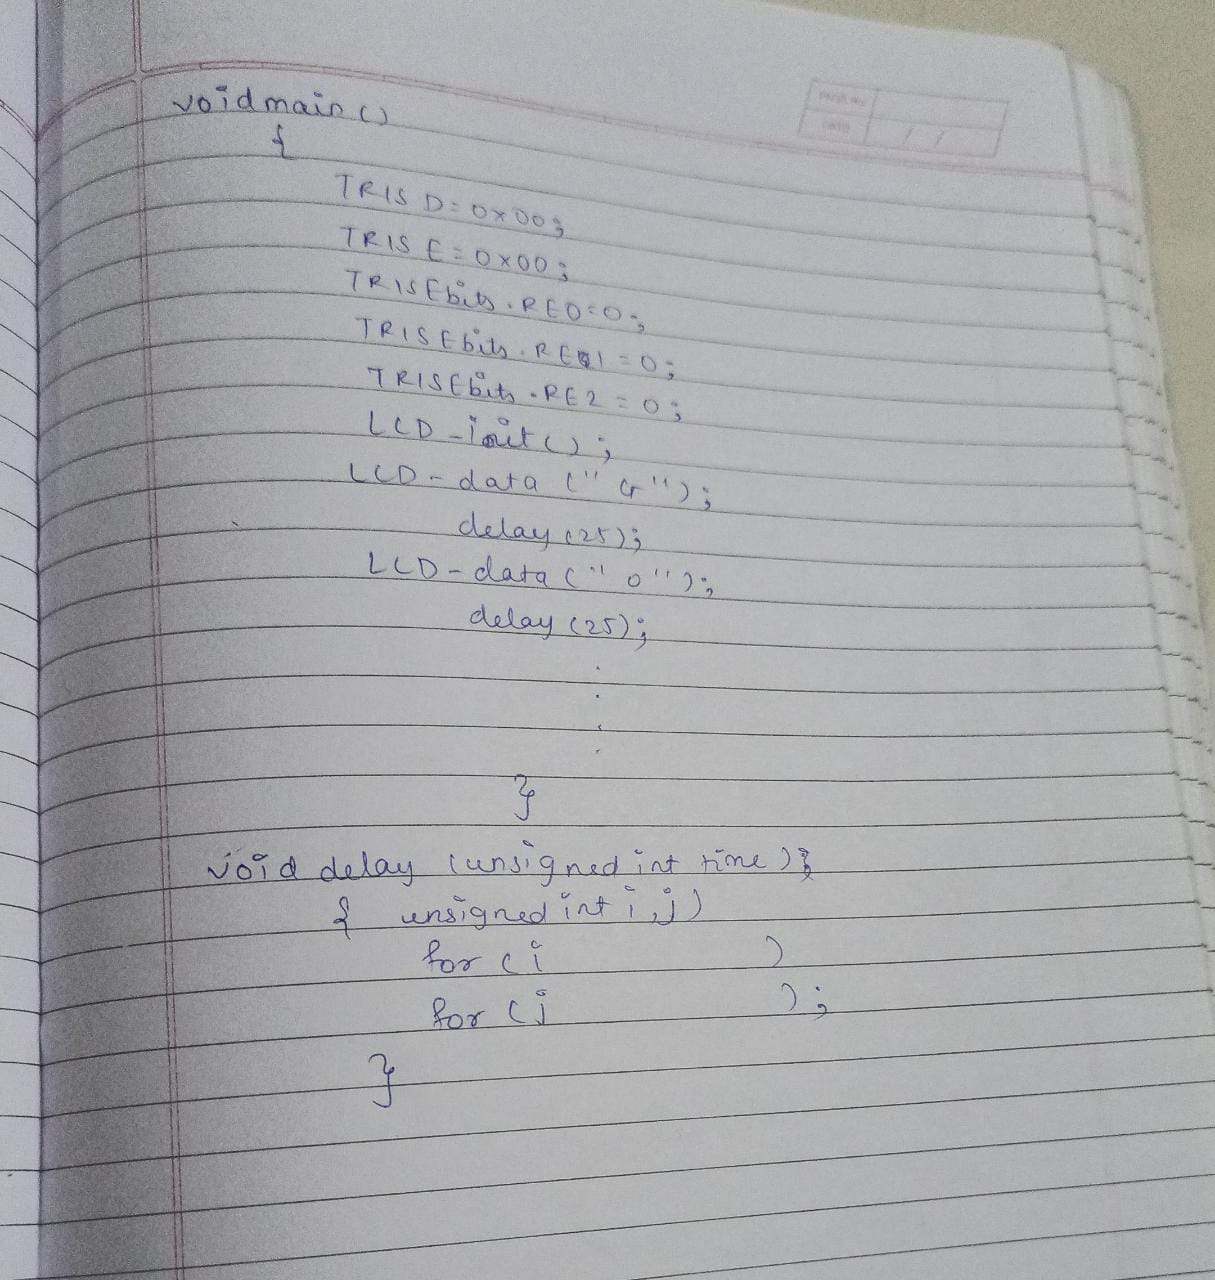 void main ()
{
TRIS D = 0x00;
TRIS E = 0x00;
TRISEbits . RE0 = 0;
TRISEbits . RE1 = 0;
TRISEbits . RE2 = 0;
LCD - init ();
LCD - data (" G ");
delay (25);
LCD - data (" o ");
delay (25);
.
.
.
.
}
void delay (unsigned int time);
{ unsigned int i, j)
for ( i )
for ( j );
}